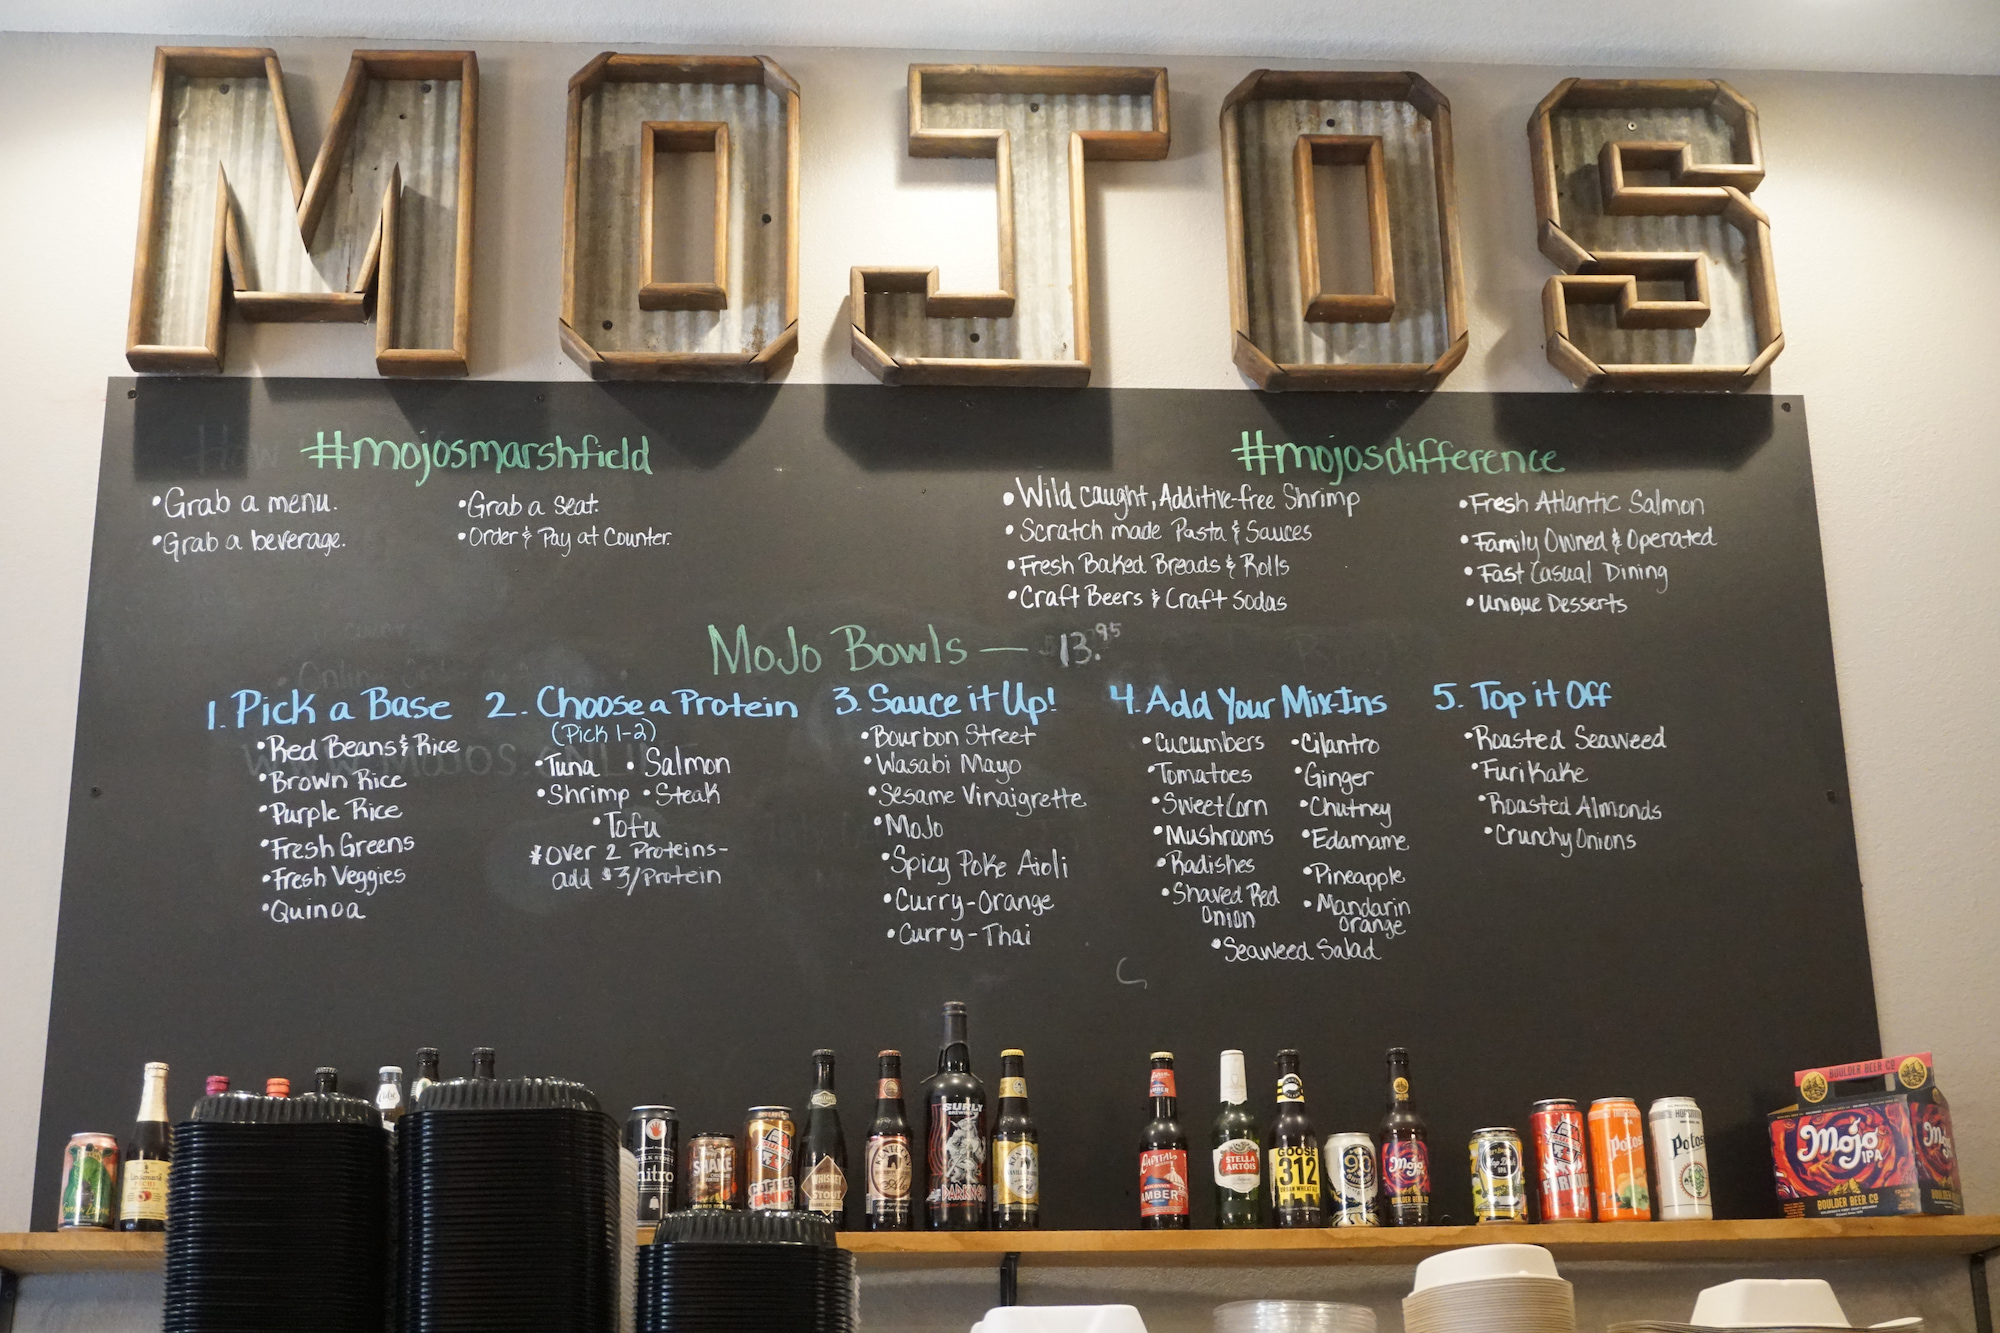 MOJOS
#mojosmarshfield
•Grab a menu.
•Grab a beverage.
•Grab a seat.
•Order & Pay at Counter.
#mojosdifference
•Wild caught, Additive-free Shrimp
•Scratch made Pasta & Sauces
•Fresh Baked Breads & Rolls
•Craft Beers & Craft Sodas
•Fresh Atlantic Salmon
•Family Owned & Operated
•Fast Casual Dining
•Unique Desserts
MoJo Bowls — $13.95
1. Pick a Base
•Red Beans & Rice
•Brown Rice
•Purple Rice
•Fresh Greens
•Fresh Veggies
•Quinoa
2. Choose a Protein
(Pick 1-2)
•Tuna •Salmon
•Shrimp •Steak
•Tofu
*Over 2 Proteins-
add $3/Protein
3. Sauce it Up!
•Bourbon Street
•Wasabi Mayo
•Sesame Vinaigrette
•MoJo
•Spicy Poke Aioli
•Curry-Orange
•Curry-Thai
4. Add Your Mix-Ins
•Cucumbers
•Tomatoes
•Sweet Corn
•Mushrooms
•Radishes
•Shaved Red
Onion
•Cilantro
•Ginger
•Chutney
•Edamame
•Pineapple
•Mandarin
Orange
•Seaweed Salad
5. Top it Off
•Roasted Seaweed
•Furikake
•Roasted Almonds
•Crunchy Onions
nitro
SHAKE
COFFEE
WHISKEY
STOUT
KENTUCKY
Ale
SURLY
BREWING CO.
DARKNESS
CAPITAL
AMBER
STELLA
ARTOIS
GOOSE
312
URBAN WHEAT ALE
90
Mojo
Top Dog
IPA
SURLY
FURIOUS
Potosi
Potosi
BOULDER BEER CO
Mojo
IPA
BOULDER BEER CO